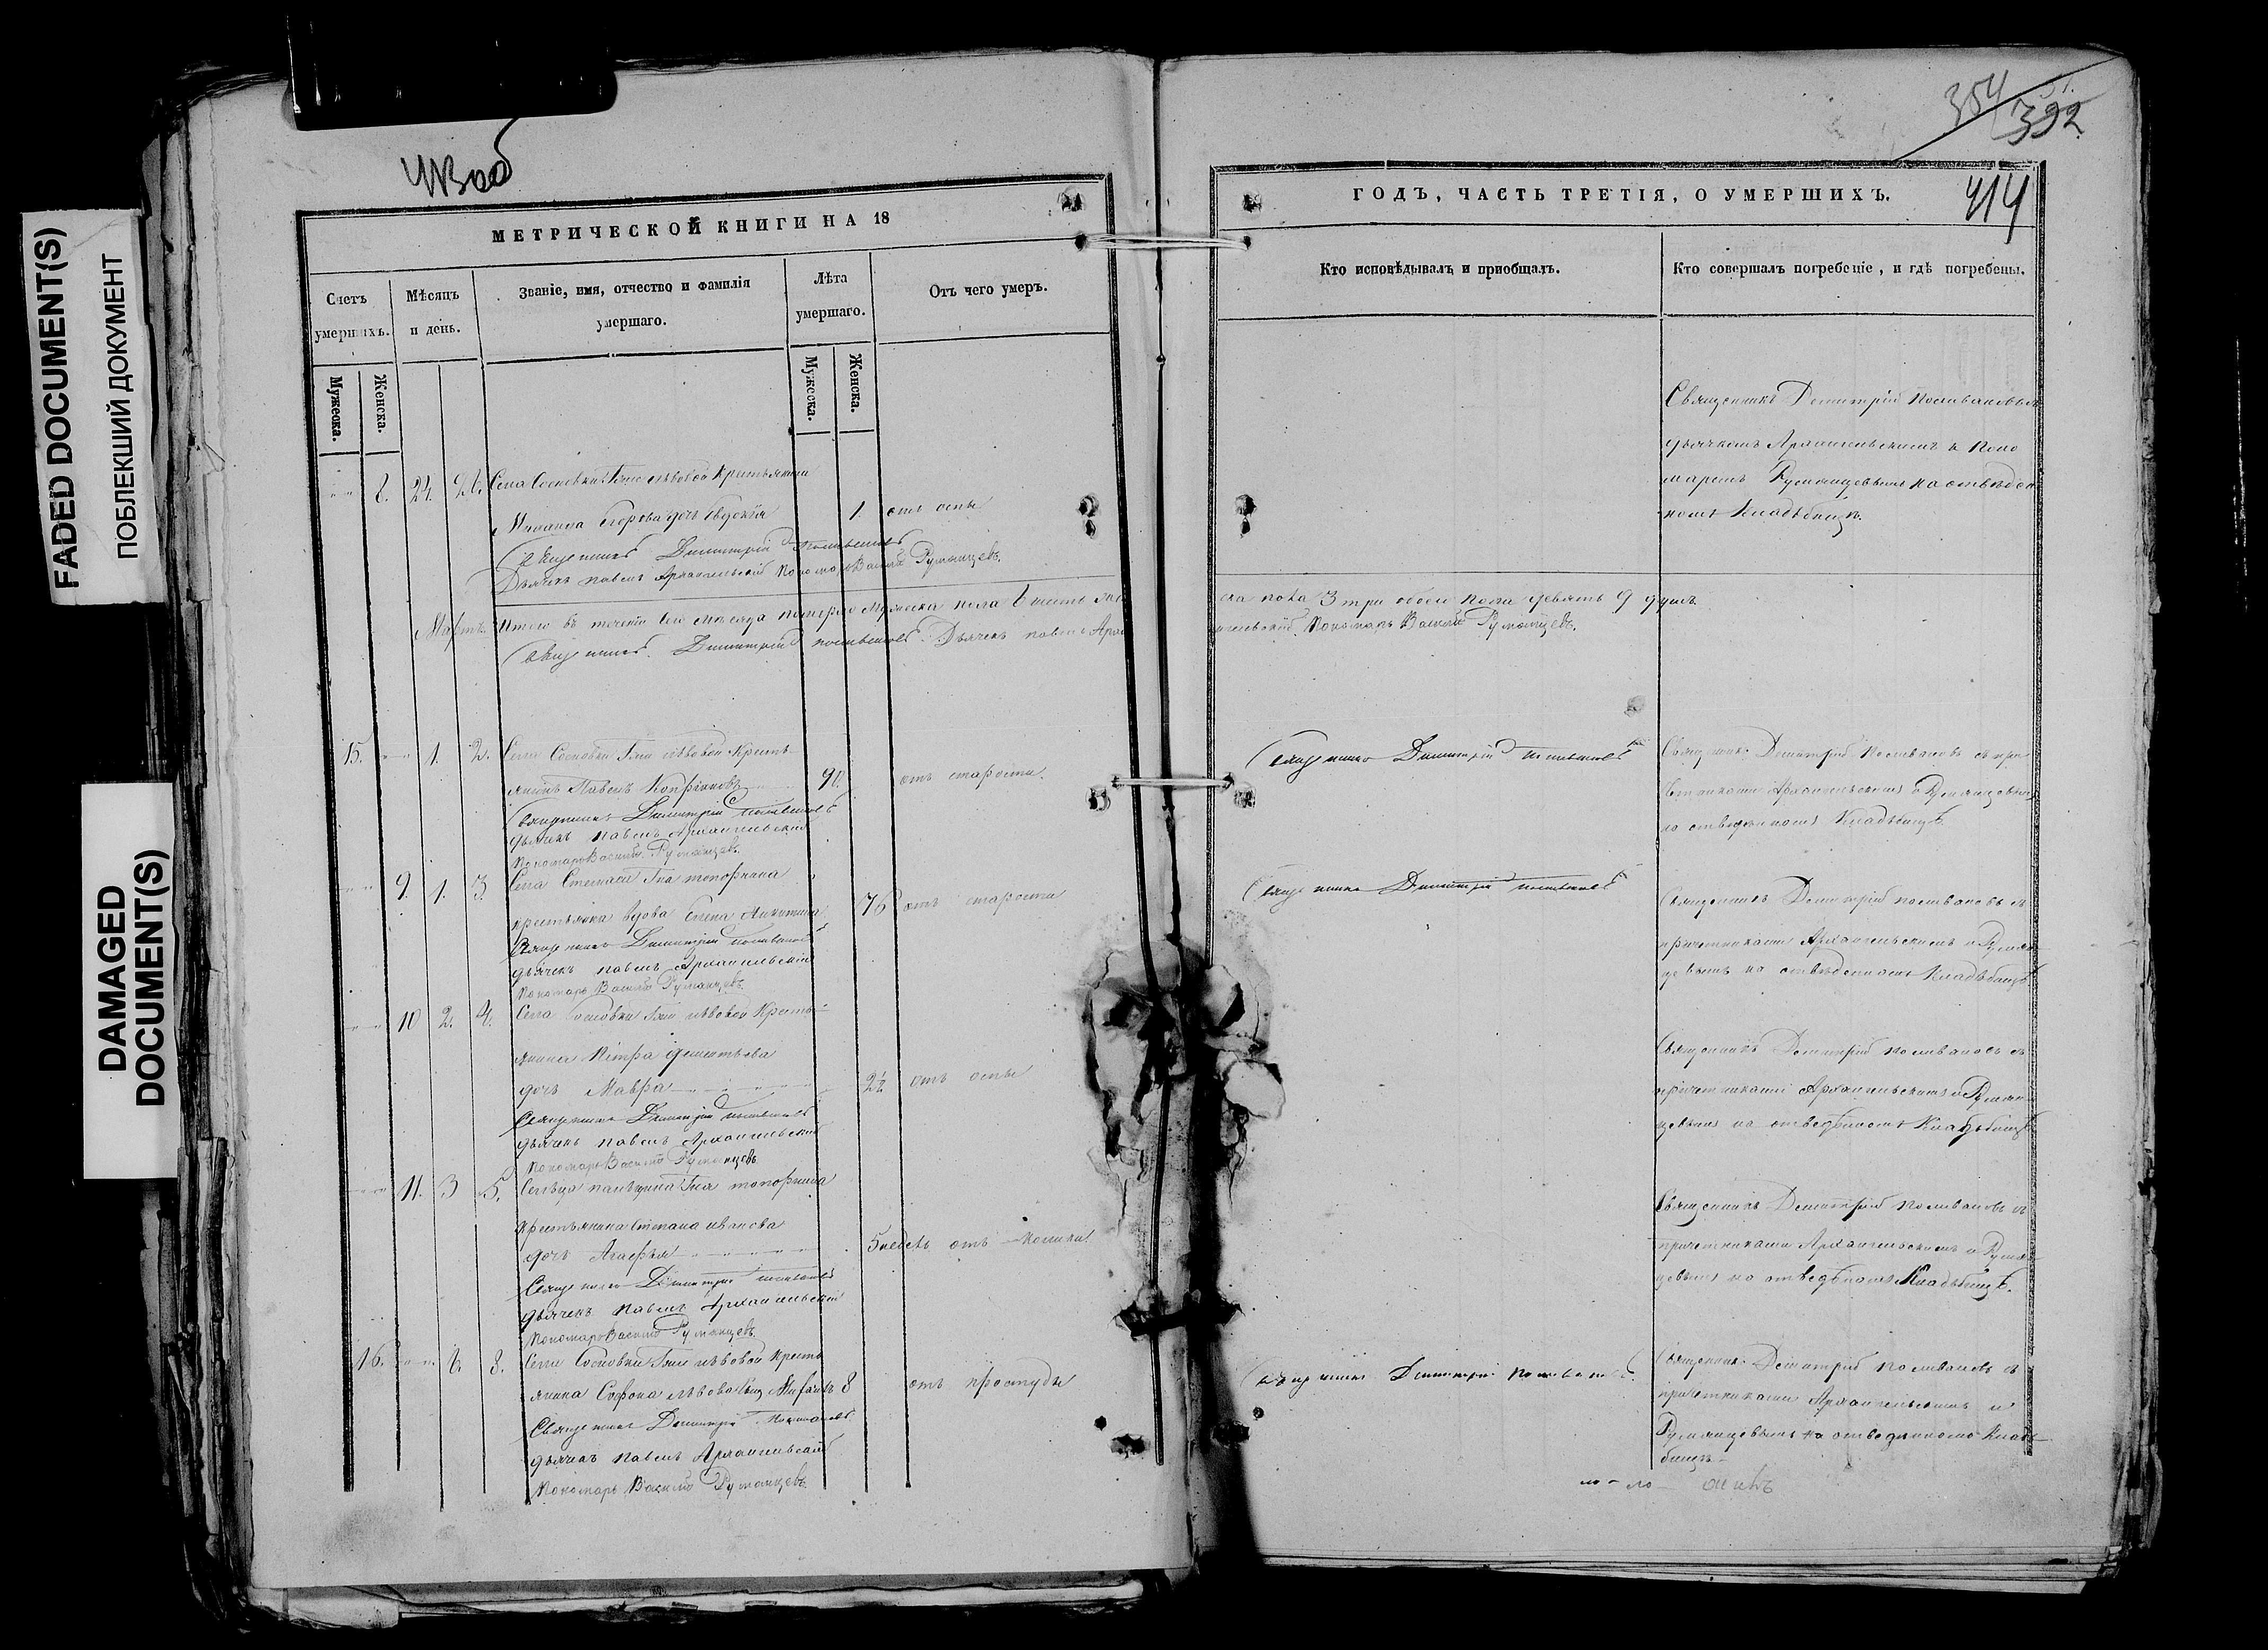 FADED DOCUMENT(S)
ПОБЛЕКШИЙ ДОКУМЕНТ
DAMAGED
DOCUMENT(S)
354
392
414
МЕТРИЧЕСКОЙ КНИГИ НА 18
Счетъ
умершихъ.
Мѣсяцъ
и день.
Званіе, имя, отчество и фамилія
умершаго.
Лѣта
умершаго.
Отъ чего умеръ.
Мужеска.
Женска.
Мужеска.
Женска.
8. 24. 26. Села Сосновки Гжи Львовой Крестьянина
Егорова дочь Евдокія 1. отъ оспы
Священникъ Димитрій Поливановъ
Дьячекъ Павелъ Архангельскій Пономарь Василій Румянцевъ.
Мартъ. Итого въ теченіи сего мѣсяца померло мужеска пола 6 шесть
Священникъ Димитрій Поливановъ Дьячекъ Павелъ Арха
15. 1. 2. Села Сосновки Гжи Львовой Кресть
янинъ Павелъ 90. отъ старости.
Священникъ Димитрій Поливановъ
дьячекъ Павелъ Архангельскій
Пономарь Василій Румянцевъ.
9. 1. 3. Села Гна Топорнина
крестьянка вдова Елена Никитина 76 отъ старости
Священникъ Димитрій Поливановъ
дьячекъ Павелъ Архангельскій
Пономарь Василій Румянцевъ.
10 2. 4. Села Сосновки Гжи Львовой Кресть
янина Петра Дементьева
дочь Мавра 2½ отъ оспы
Священникъ Димитрій Поливановъ
дьячекъ Павелъ Архангельскій
Пономарь Василій Румянцевъ
11. 3 5. Сельца Гна Топорнина
крестьянина Степана Иванова
дочь Агафья 5 недѣль отъ
Священникъ Димитрій Поливановъ
дьячекъ Павелъ Архангельскій
Пономарь Василій Румянцевъ.
16. 6. 8. Села Сосновки Гжи Львовой Кресть
янина Софона Львова сынъ 8 отъ простуды
Священникъ Димитрій Поливановъ
дьячекъ Павелъ Архангельскій
Пономарь Василій Румянцевъ.
ГОДЪ, ЧАСТЬ ТРЕТІЯ, О УМЕРШИХЪ.
Кто исповѣдывалъ и приобщалъ.
Кто совершалъ погребеніе, и гдѣ погребены.
Священникъ Димитрій Поливановъ съ
дьячкомъ Архангельскимъ и Поно
маремъ Румянцевымъ на отведен
номъ Кладбищѣ.
ска пола 3 три обоего пола девять 9 душъ.
нгельскій. Пономарь Василій Румянцевъ.
Священникъ Димитрій Поливановъ
Священникъ Димитрій Поливановъ съ при
четниками Архангельскимъ и Румянцевымъ
на отведенномъ Кладбищѣ.
Священникъ Димитрій Поливановъ
Священникъ Димитрій Поливановъ съ
причетниками Архангельскимъ и Румян
цевымъ на отведенномъ Кладбищѣ.
Священникъ Димитрій Поливановъ съ
причетниками Архангельскимъ и Румян
цевымъ на отведенномъ Кладбищѣ
Священникъ Димитрій Поливановъ съ
причетниками Архангельскимъ и Румян
цевымъ на отведенномъ Кладбищѣ.
Священникъ Димитрій Поливановъ.
Священникъ Димитрій Поливановъ съ
причетниками Архангельскимъ и
Румянцевымъ на отведенномъ Клад
бищѣ